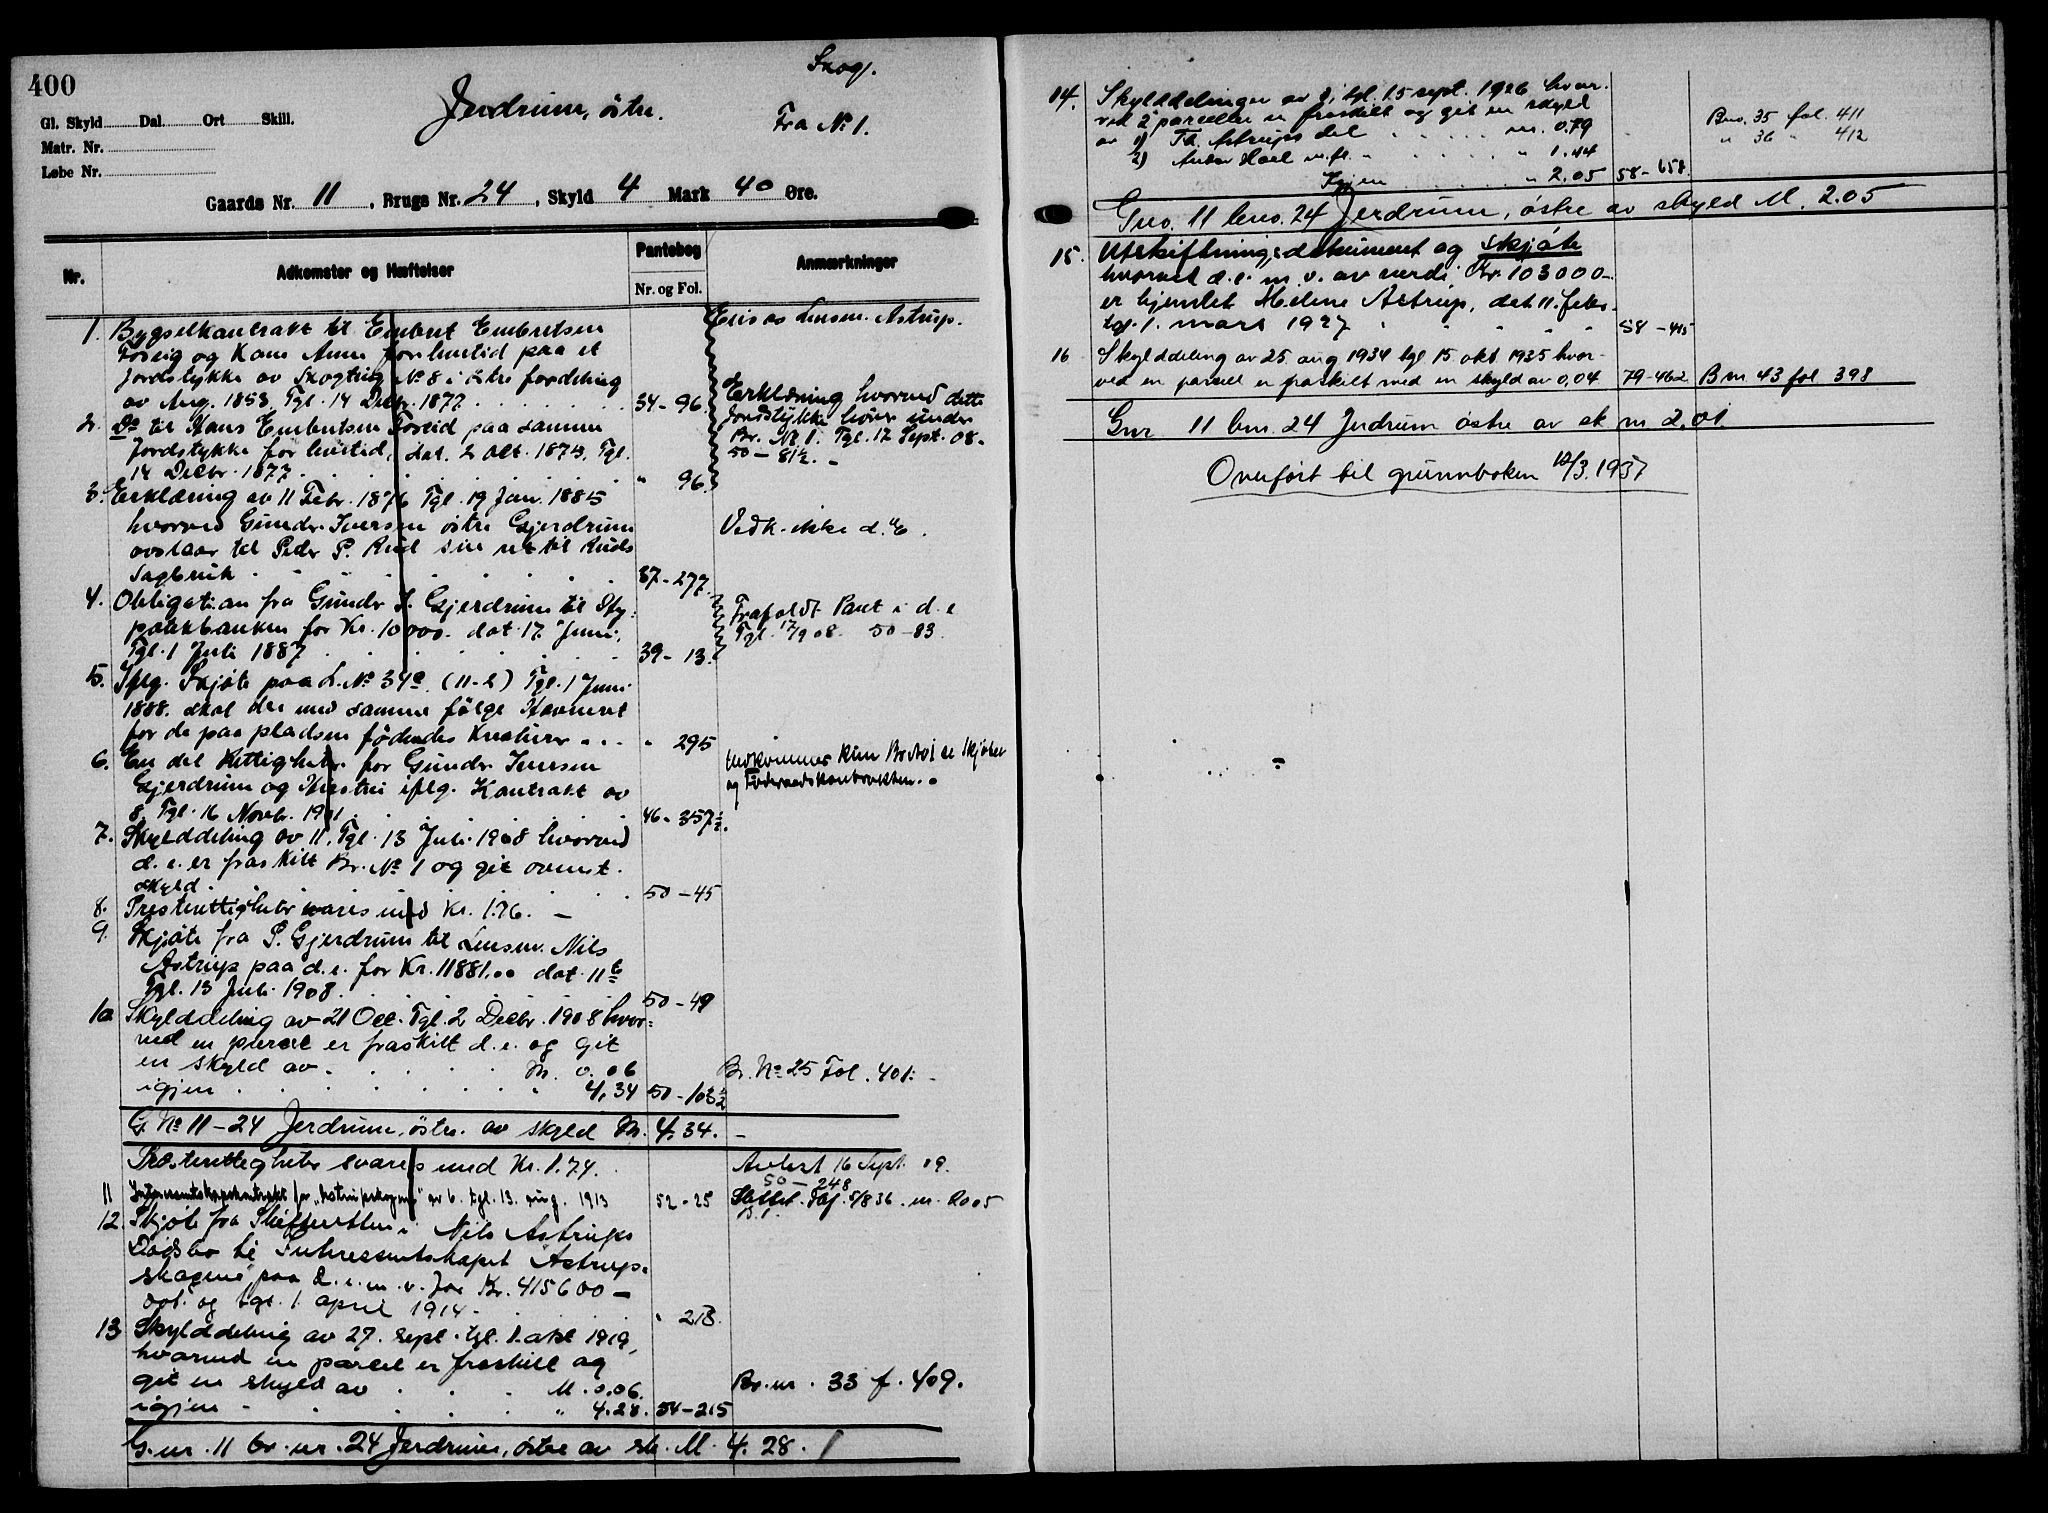 400
Skog.
Jerdrum, östre.
Fra No 1.
Gl. Skyld Dal. Ort Skill.
Matr. Nr.
Løbe Nr.
Gaards Nr. 11, Brugs Nr. 24, Skyld 4 Mark 40 Øre.
Nr. Adkomster og Hæftelser Pantebog Nr. og Fol. Anmærkninger
1. Bygselkontrakt til Embret Embretsen
Foseid og Kone Anne for livstid paa et
Jordstykke av Skogteig No 8 i östre fordeling
av Aug. 1853, Tgl. 14 Decbr. 1877. 34-96.
Lensm. Astrup.
Erklæring hvorved dette
Jordstykke hører under
Br. No 1. Tgl. 17 Sept. 08.
50-81½.
2. Do til Hans Embretsen Foseid paa samme
Jordstykke for livstid, dat. 2 Oct. 1875, Tgl.
14 Decbr. 1877. " 96.
3. Erklæring av 11 Febr. 1876 Tgl. 19 Jan. 1885
hvorved Gunder Iversen östre Gjerdrum
avstaar til Peder P. Rud sin ret til Ruds
Sagbruk. 37-277.
Vedk. ikke d. E.
4. Obligation fra Gunder I. Gjerdrum til Hy-
pothekbanken for Kr. 10000. dat. 17 Juni,
Tgl. 1 Juli 1887. 39-13.
Frafaldt Pant i d. e
Tgl. 17/9 08. 50-83.
5. Iflg. Skjöte paa L. No 34e (11-2) Tgl. 1 Juni
1888. skal der med samme fölge Havneret
for de paa pladsen födendes Kreaturer. " 295
6. En del Rettigheter for Gunder Iversen
Gjerdrum og Hustru iflg. Kontrakt av
8, Tgl. 16 Novbr. 1901. 46-357½.
Vedkommer kun Br. No 1 se Skjötet
og Föderaadskontrakten.
7. Skylddeling av 11, Tgl. 13 Juli 1908 hvorved
d. e. er fraskilt Br. No 1 og git ovenst.
skyld. 50-45
8. Presterettigheter svares med Kr. 1.76. —
9. Skjöte fra P. Gjerdrum til Lensm. Nils
Astrup paa d. e. for Kr. 11881.00 dat. 11te
Tgl. 13 Juli 1908. 50-49
10. Skylddeling av 21 Oct. Tgl. 2 Decbr. 1908 hvor-
ved en parcel er fraskilt d. e. og git
en skyld av M. 0.06 Br. No 25 Fol. 401.
igjen " 4,34 50-103½
G. No 11-24 Jerdrum, östre av skyld M. 4.34. —
Presterettigheter svares med Kr. 1.74. Avløst 16 Sept. 09.
50-248
11 Interessentskapskontrakt for "Astrupskogene" av 6. tgl. 13. aug. 1913 52-25 Slettet. Tgl. 5/8 36. nr. 2005
12. Skjöte fra Skifteretten i Nils Astrups
Dödsbo til Interessentskapet "Astrup-
skogene" paa d. e. m. v. for Kr. 415600 —
dat. og tgl. 1. april 1914. " 213.
13 Skylddeling av 27. sept. tgl. 1. okt 1919,
hvorved en parcel er fraskilt og
git en skyld av M. 0.06. Br. nr. 33 f. 409.
igjen " 4.28. 54-215
G. nr. 11 br. nr. 24 Jerdrum, östre av sk. M. 4.28.
14. Skylddelinger av 8, tgl. 15 sept. 1926 hvor-
ved 2 parceller er fraskilt og git en skyld
av 1) Th. Astrups del m. 0.79 Bno. 35 fol. 411
2) Anton Hoel m. fl. " 1.44 " 36 " 412
Igjen " 2.05 58-658
Gno. 11 bno. 24 Jerdrum, östre av skyld M. 2.05
15. Utskiftningsdokument og skjøte
hvorved d. e. m. v. av verdi Kr. 103000-
er hjemlet Helene Astrup, dat. 11. febr.
tgl. 1. mars 1927 58-
16 Skylddeling av 25 aug 1934 tgl 15 okt 1935 hvor-
ved en parsel er fraskilt med en skyld av 0,04 79-462 Bnr 43 fol 398
Gnr 11 bnr. 24 Jerdrum østre av sk m 2.01
Overført til grunnboken 12/3 1937